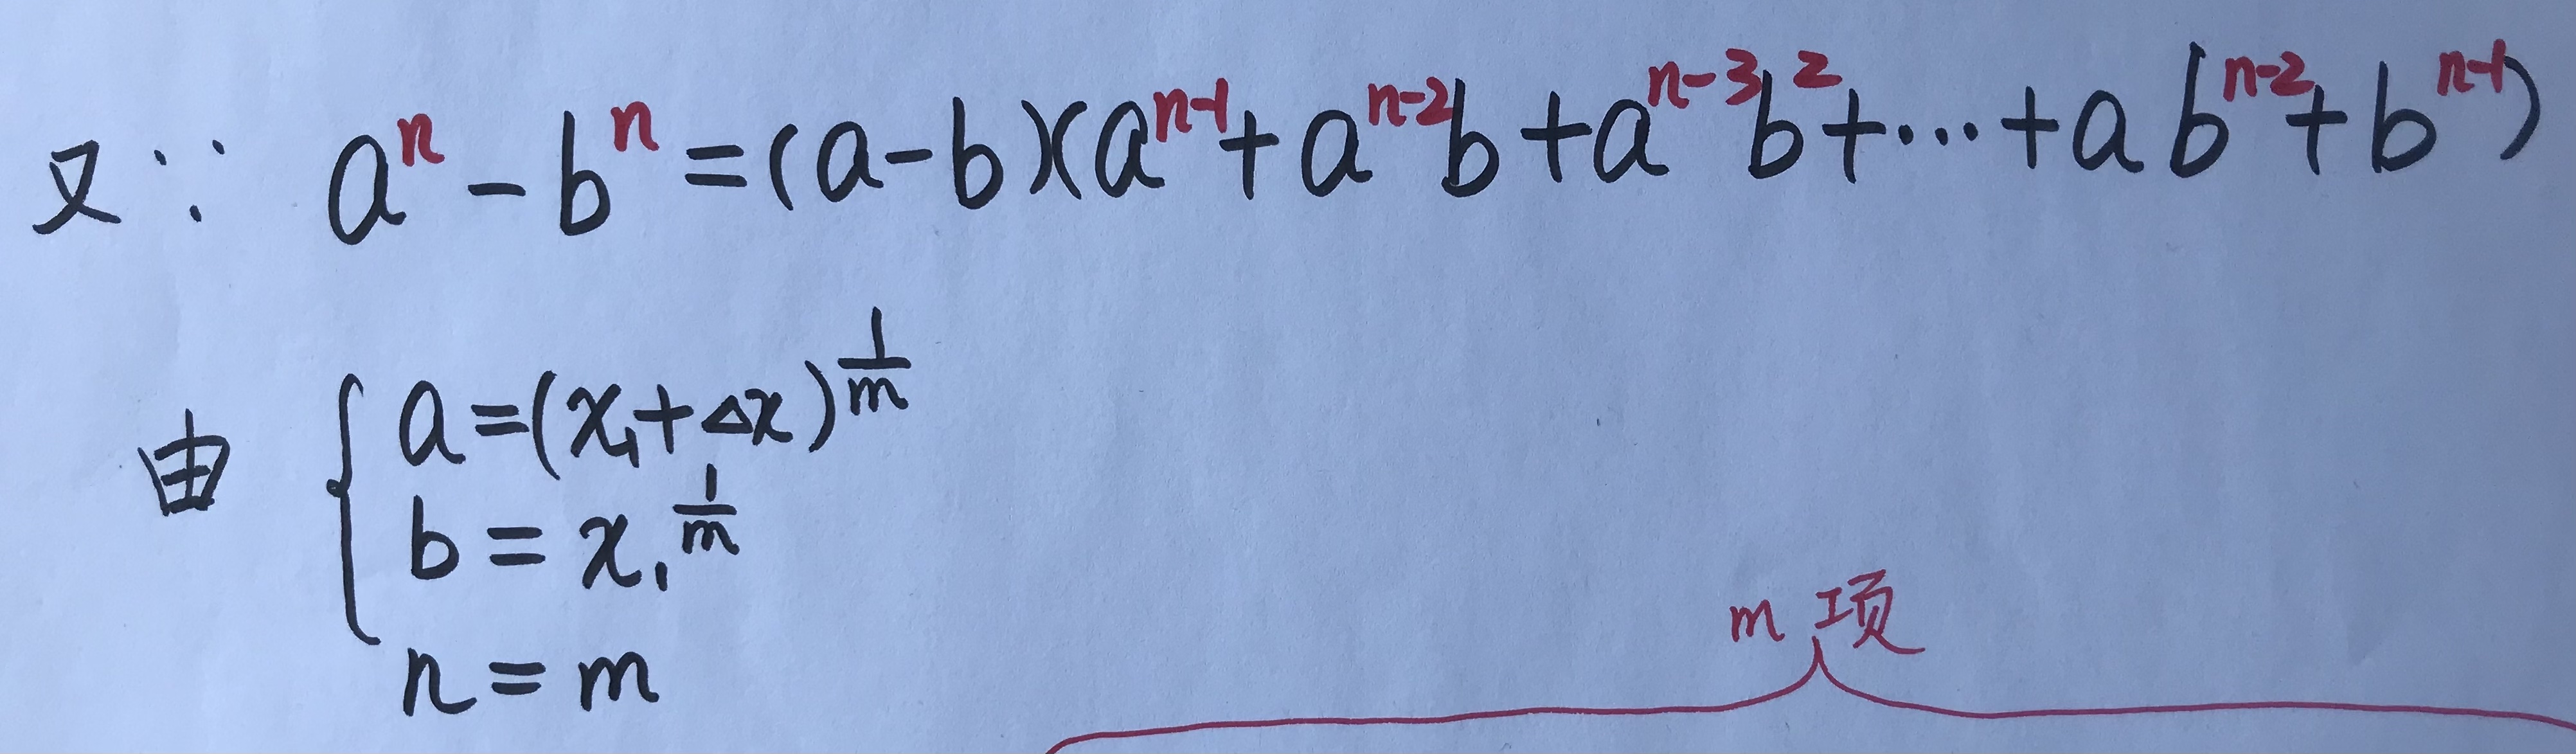 又∵ aⁿ - bⁿ = (a-b)(aⁿ⁻¹ + aⁿ⁻²b + aⁿ⁻³b² + ⋯ + abⁿ⁻² + bⁿ⁻¹)
由 { a = (x₁+Δx)^(1/m)
b = x₁^(1/m)
n = m
m 项